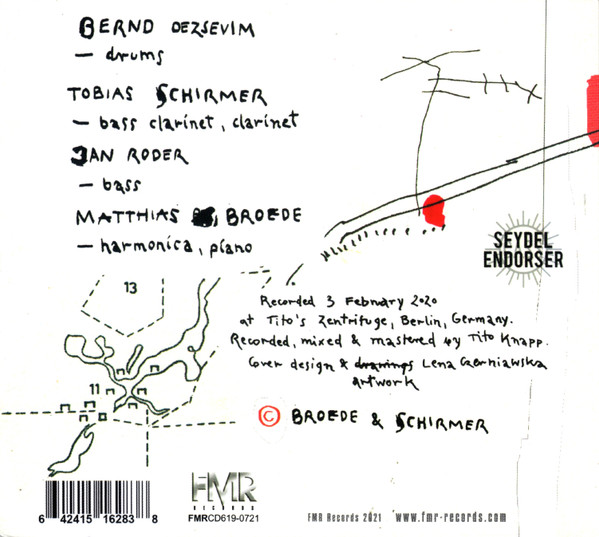 BERND OEZSEVIM
— drums
TOBIAS SCHIRMER
— bass clarinet, clarinet
JAN RODER
— bass
MATTHIAS BROEDE
— harmonica, piano
SEYDEL
ENDORSER
13
11
Recorded 3 February 2020
at Tito's Zentrifuge, Berlin, Germany.
Recorded, mixed & mastered by Tito Knapp.
Cover design & drawings Lena Czerniawska
artwork
© BROEDE & SCHIRMER
6 42415 16283 8
FMR
RECORDS
FMRCD619-0721
FMR Records 2021 www.fmr-records.com